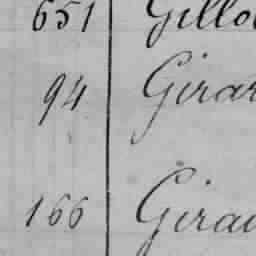 651 Gillo
94 Girar
166 Girau